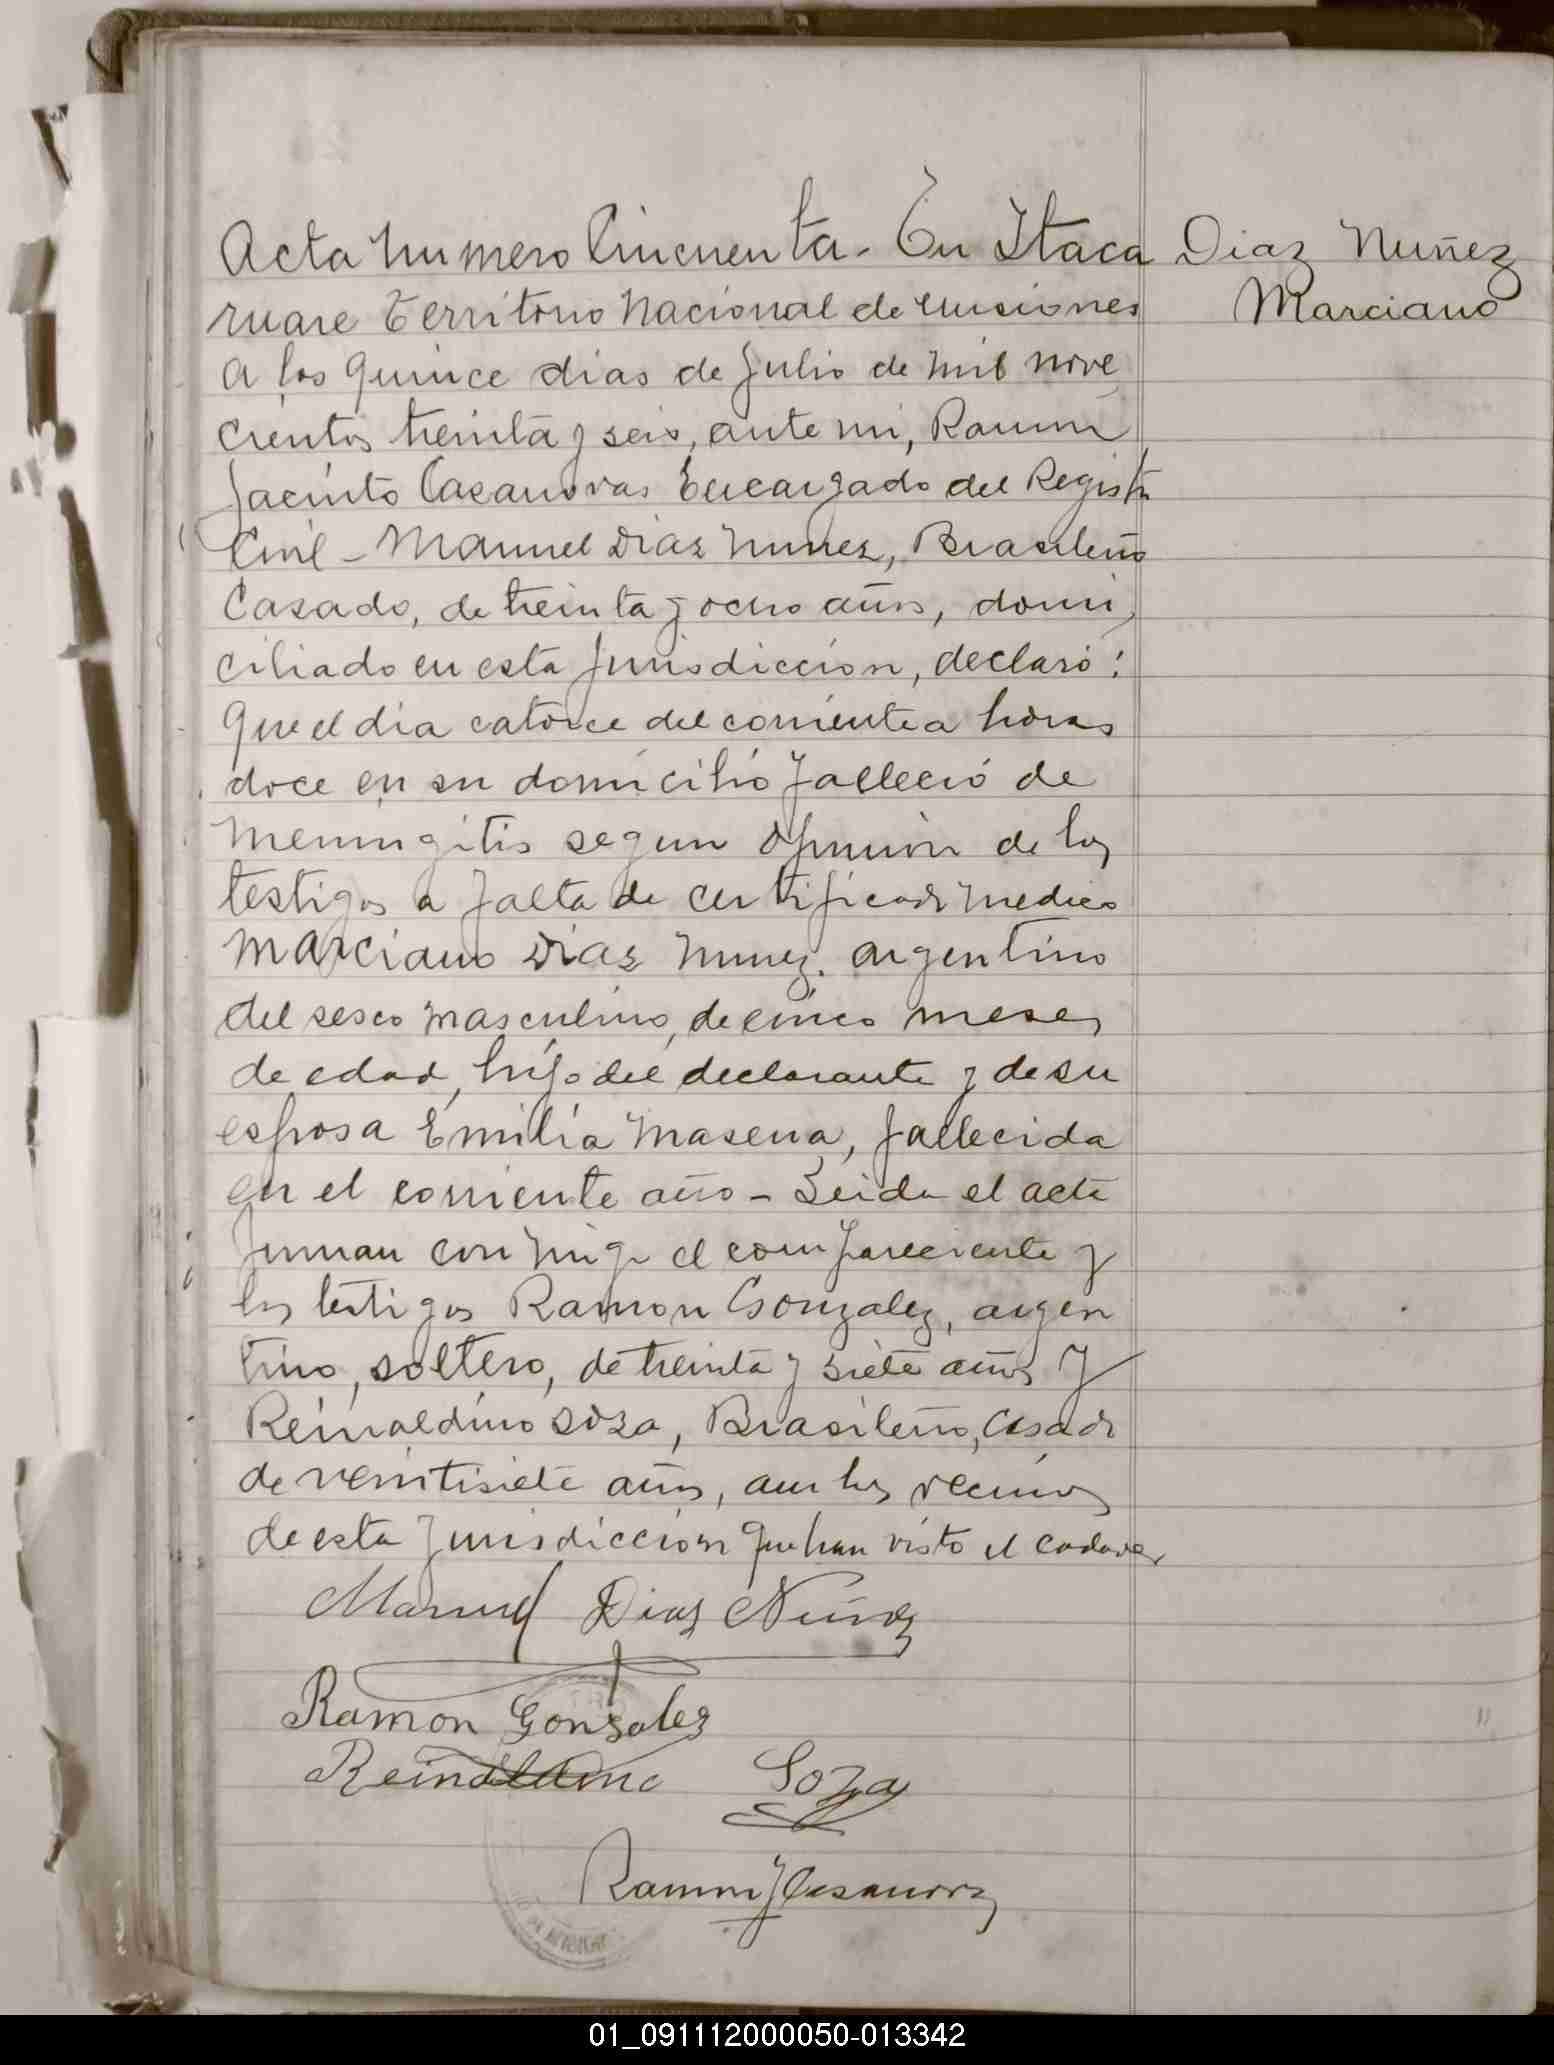 Acta numero Cincuenta - En Itaca
ruare Territorio Nacional de Misiones
a los quince dias de Julio de mil nove
cientos treinta y seis, ante mi, Ramon
Jacinto Casanovas Encargado del Registro
Civil - Manuel Diaz Nunez, Brasileño
Casado, de treinta y ocho años, domi
ciliado en esta Jurisdiccion, declaró:
Que el dia catorce del corriente a horas
doce en su domicilio falleció de
Meningitis segun opinion de los
testigos a falta de certificado medico
Marciano Diaz Nunez. argentino
del secso masculino, de cinco meses
de edad, hijo del declarante y de su
esposa Emilia Masena, fallecida
en el corriente año - Leida el acta
firman con migo el compareciente y
los testigos Ramon Gonzalez, argen
tino, soltero, de treinta y siete años y
Reinaldino Soza, Brasileño, Casado
de veintisiete años, ambos vecinos
de esta Jurisdiccion que han visto el cadaver
Manuel Diaz Nuñez
Ramon Gonzalez
Reinaldino Soza
Ramon J Casanovas
Diaz Nuñez
Marciano
01_091112000050-013342